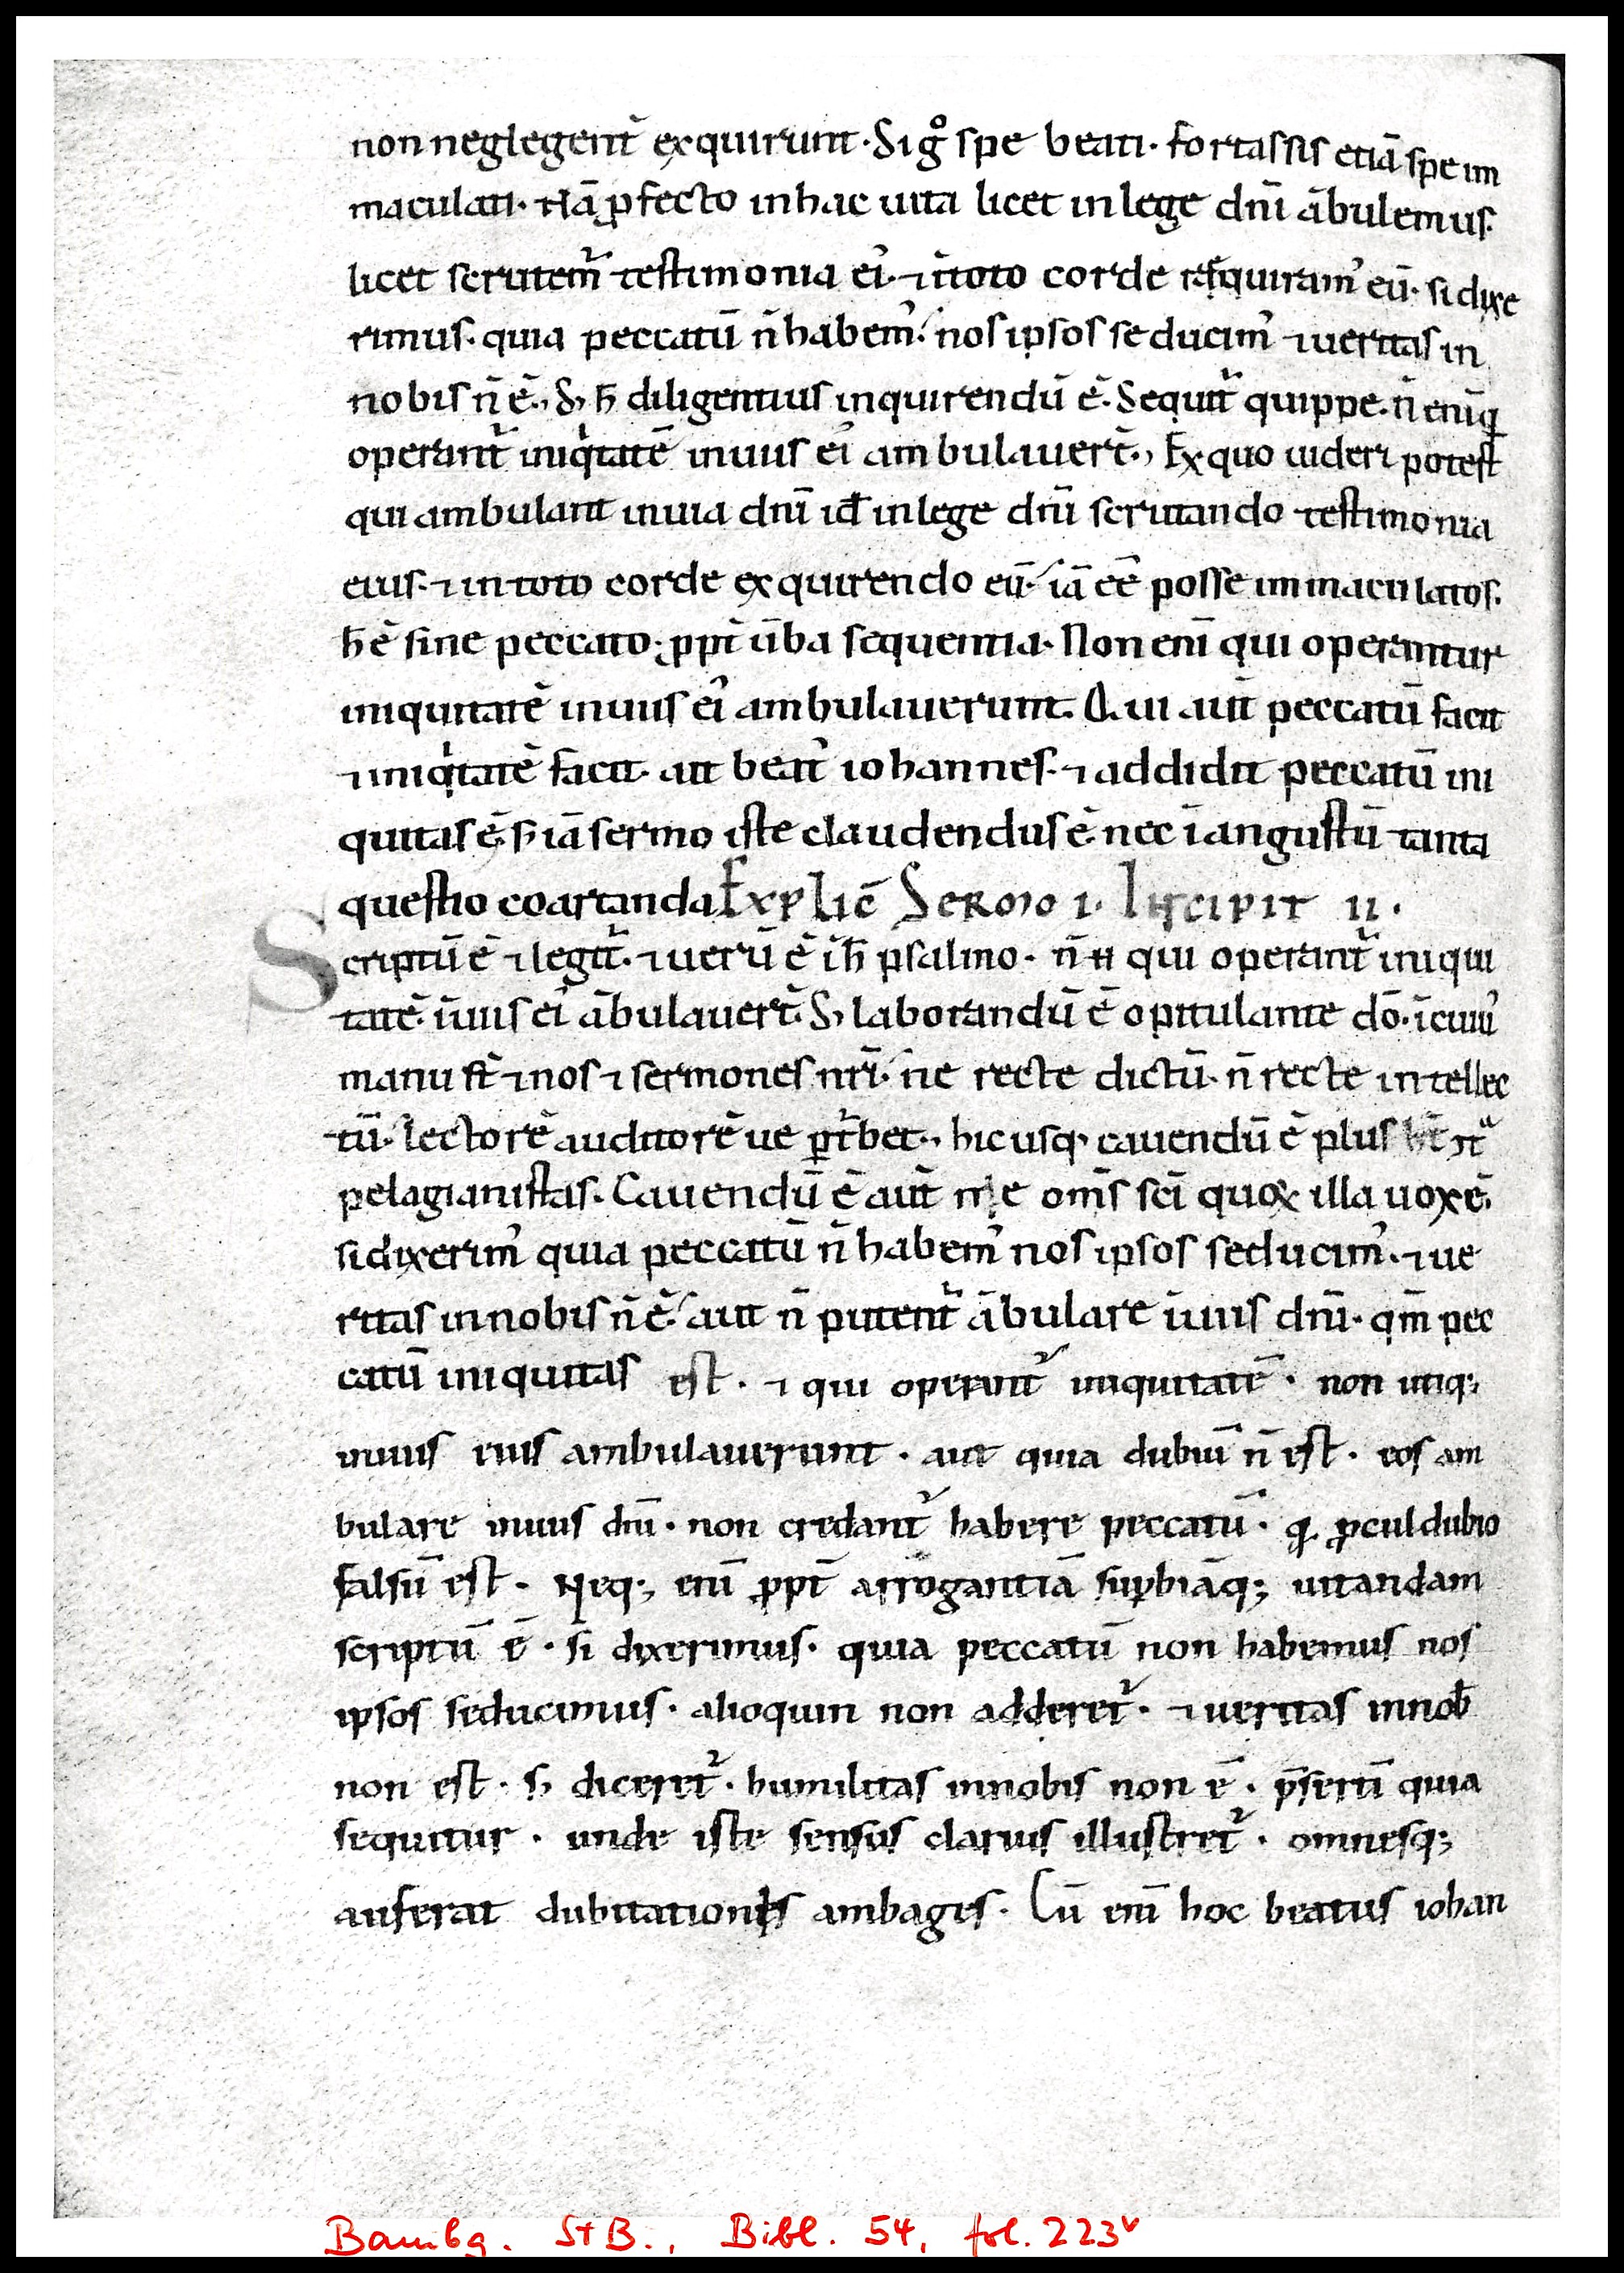 non neglegenť exquirunt. Si gͦ spe beati. fortassis etiā spe im
maculati. Nā ꝓfecto in hac uita licet in lege dnī ābulemus.
licet scrutem᷑ testimonia ei᾽. ⁊ ītoto corde reqquiram᾽ eū. si dixe
rimus. quia peccatū n̄ habem᾽. nos ipsos seducim᾽ ⁊ ueritas in
nobis n̄ ē., S; h̄ diligentius inquirendū ē. Sequit᷑ quippe. n̄ enī q
operant᷑ iniqͥtatē in uiis ei᾽ ambulauert̄., Ex quo uideri potest
qui ambulant in uia dnī id̄ in lege dnī scrutando testimonia
eius. ⁊ in toto corde exquirendo eū. iā eē posse immaculatos.
h̄ ē sine peccato. ꝓpt̄ ūba sequentia. Non enī qui operantur
iniquitatē in uiis ei᾽ ambulauerunt. Qui aut̄ peccatū facit
⁊ iniqͥtatē facit. ait beat᾽ iohannes. ⁊ addidit peccatū ini
quitas ē. s; iā sermo iste claudendus ē. nec ī angustū tanta
questio coartanda Explic̄ Sermo i. Incipit ii.
Scriptū ē ⁊ legit᷑. ⁊ uerū ē ī h̄ psalmo. n̄ ÷ qui operant᷑ iniqui
tatē. ī uiis ei᾽ ābulauert̄. S; laborandū ē opitulante dō. ī cuiu᾽
manu st̄ ⁊ nos ⁊ sermones nr̄i. ne recte dictū. n̄ recte intellec
tū. lectorē auditorē ue ꝑt᷑bet., hic usq; cauendū ē plus
pelagianistas. Cauendū ē aut̄ ne om̄s sc̄i quoꝝ illa uox ē.
si dixerim᾽ quia peccatū n̄ habem᾽ nos ipsos seducim᾽. ⁊ ue
ritas in nobis n̄ ē. aut n̄ putent᷑ ābulare ī uiis dnī. qm̄ pec
catū iniquitas est. ⁊ qui operant᷑ iniquitatē. non utiq;
in uiis eius ambulauerunt. aut quia dubiū n̄ est. eos am
bulare in uiis dnī. non credant᷑ habere peccatū. qͩ ꝓcul dubio
falsū est. Neq; enī ꝓpt̄ arrogantiā suꝑbiāq; uitandam
scriptū ē. si dixerimus. quia peccatū non habemus nos
ipsos seducimus. alioquin non adderet᷑. ⁊ ueritas in nob̄
non est. s; diceret᷑. humilitas in nobis non ē. p̄sertī quia
sequitur. unde iste sensus clarius illustret᷑. omnesq;
auferat dubitationis ambages. Cū enī hoc beatus iohan
Bambg. StB., Bibl. 54, fol. 223v